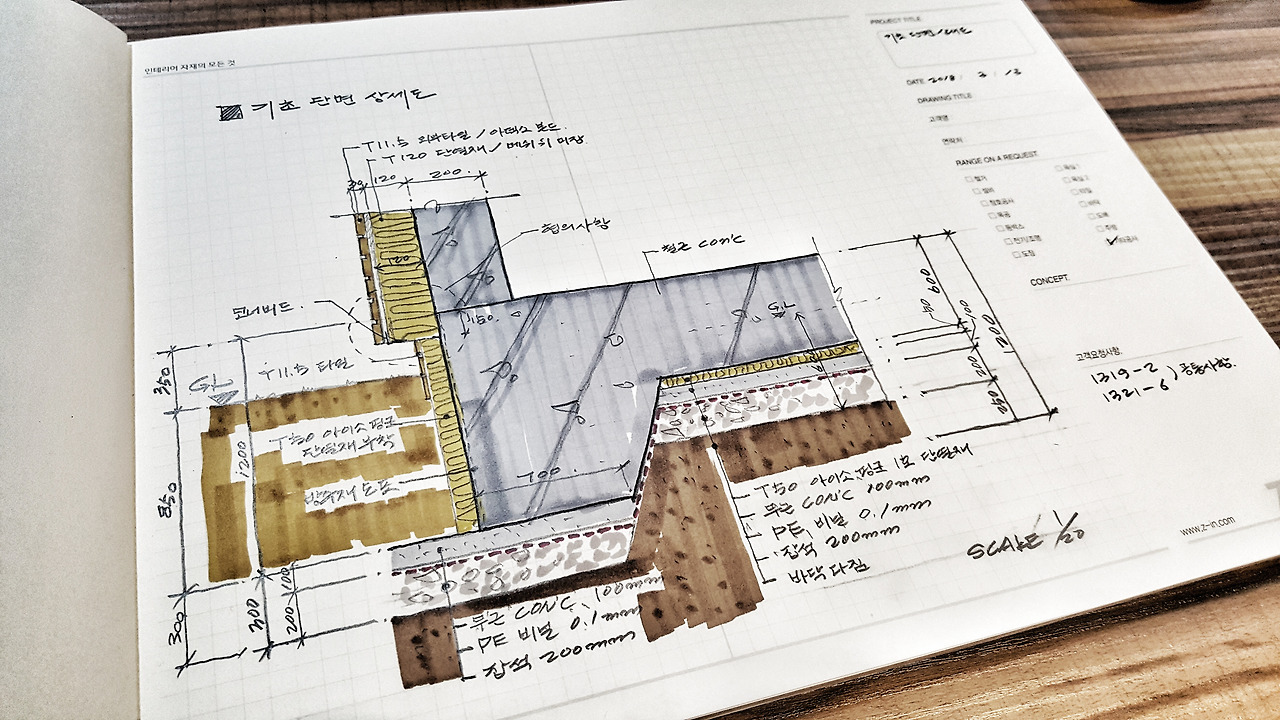 인테리어 자재의 모든 것
기초 단면 상세도
T11.5 외부타일 / 아덱스 본드.
T120 단열재 / 메쉬 위 미장
20 120 200.
협의사항
철근 CON'C
120
코너비드
150.
GL
T11.5 타일
350
GL
T50 아이소핑크
단열재 부착
방수재 도포
1200
850
700
600
100
200
1200
250
T50 아이소핑크 1호 단열재
무근 CON'C 100mm
PE 비닐 0.1mm
잡석 200mm
바닥 다짐
SCALE 1/20
무근 CON'C 100mm
PE 비닐 0.1mm
잡석 200mm
300
300
200
100
PROJECT TITLE
기초 단면상세도
DATE 2018 / 3 / 13
DRAWING TITLE
고객명
연락처
RANGE ON A REQUEST.
철거
설비
창호공사
목공
전기/조명
도장
욕실 1
욕실 2
타일
바닥
도배
주방
CONCEPT.
고객요청사항.
1319-2
1321-6 ) 공통사항.
www.z-in.com